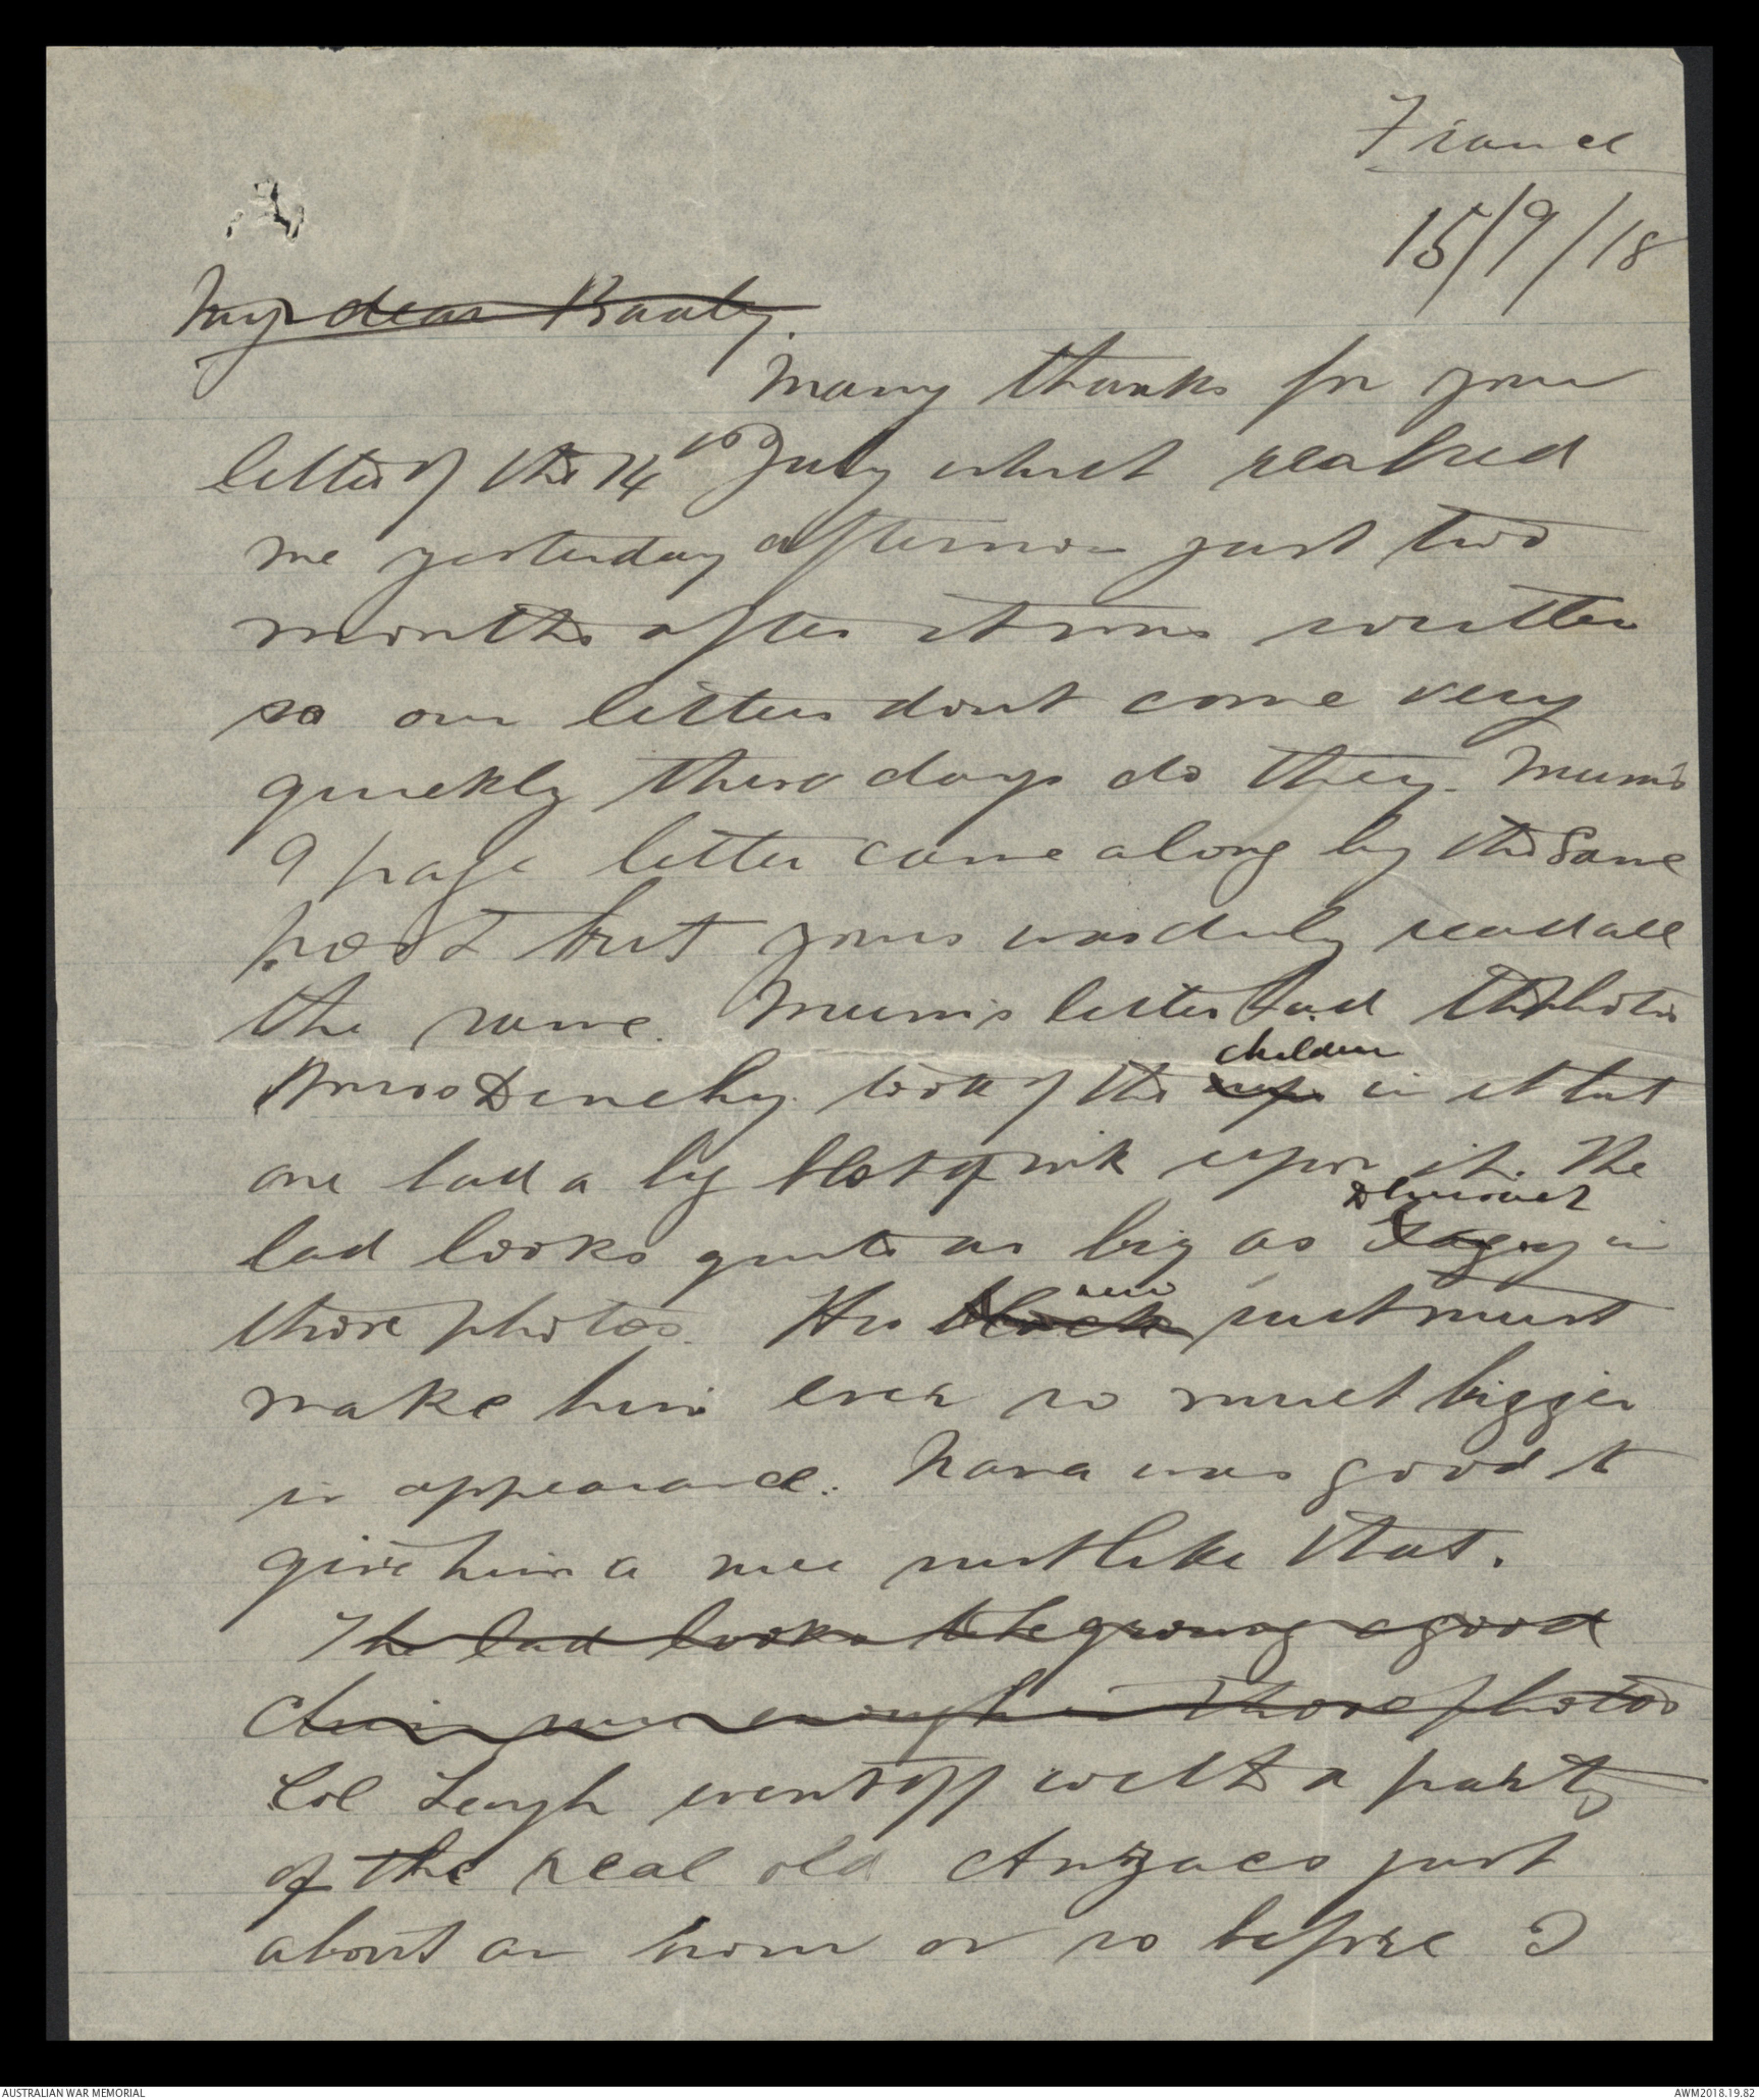 France
15/9/18
My dear Bruty.
Many thanks for your
letter of the 14th July which reached
me yesterday afternoon just two
months after it was written
so our letters dont come very
quickly these days do they. Mum's
9 page letter came along by the same
post but yours was duly read all
the same. Mum's letter had the photos
Miss Denehy took of the children in it but
one had a big blot of ink upon it. The
lad looks quite as big as in
those photos. His black new suit must
make him ever so much bigger
in appearance. Nana was good to
give him a nice suit like that.
The lad looks to be growing a good
enough in those photos
Col Leagh went off with a party
of the real old Anzacs just
about an hour or so before I
AUSTRALIAN WAR MEMORIAL
AWM2018.19.82